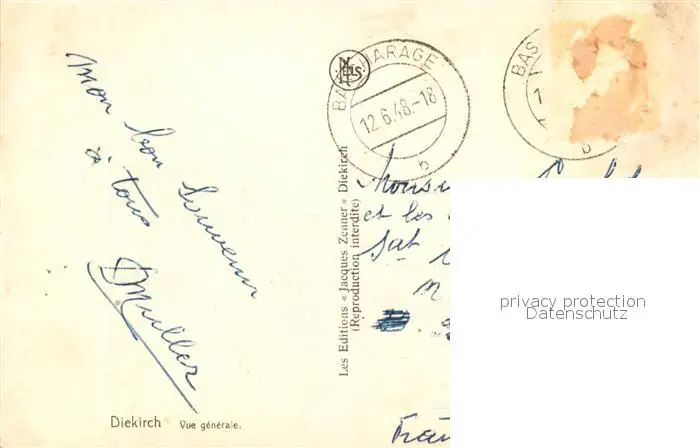 Mon bon Souvenir
à tous
Muller
Diekirch Vue générale.
Les Editions « Jacques Zenner » Diekirch
(Reproduction interdite)
NELS
BASCHARAGE
12.6.48.-18
b
BAS
1
b
et les
privacy protection
Datenschutz